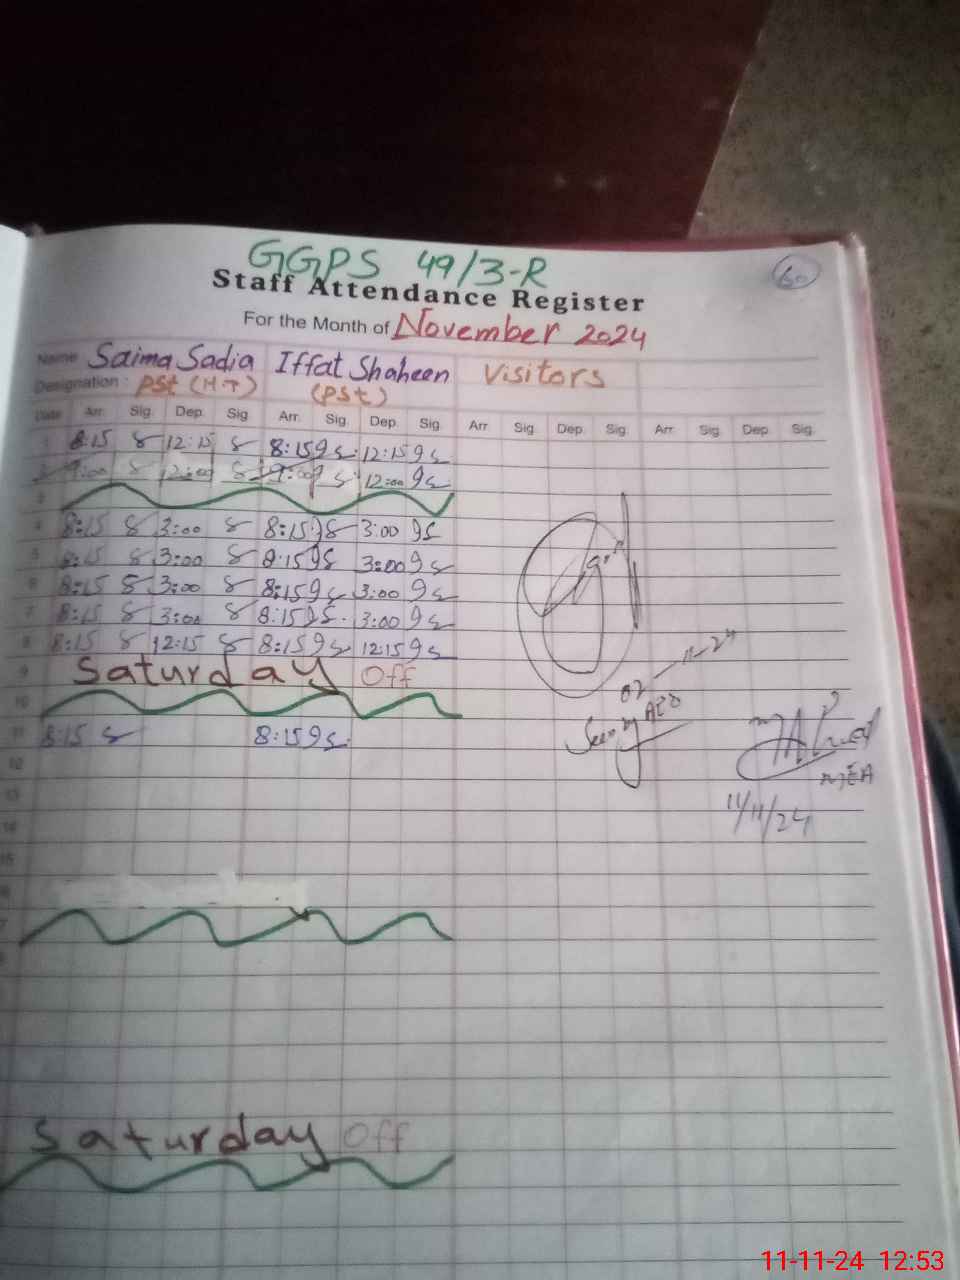 GGPS 49/3-R
60
Staff Attendance Register
For the Month of November 2024
Name Saima Sadia Iffat Shaheen Visitors
Designation : PST (H.T) (PST)
Date Arr. Sig. Dep. Sig. Arr. Sig. Dep. Sig. Arr. Sig. Dep. Sig. Arr. Sig. Dep. Sig.
1 8:15 S 12:15 S 8:15 9s 12:15 9s
2 9:00 S 12:00 S 9:00 9s 12:00 9s
3
4 8:15 S 3:00 S 8:15 9s 3:00 9s
5 8:15 S 3:00 S 8:15 9s 3:00 9s
6 8:15 S 3:00 S 8:15 9s 3:00 9s
7 8:15 S 3:00 S 8:15 9s 3:00 9s
8 8:15 S 12:15 S 8:15 9s 12:15 9s
9 Saturday Off
02-11-24
10
Seen by AEO
11 8:15 S 8:15 9s
MEA
12
11/11/24
13
14
15
Saturday Off
11-11-24 12:53